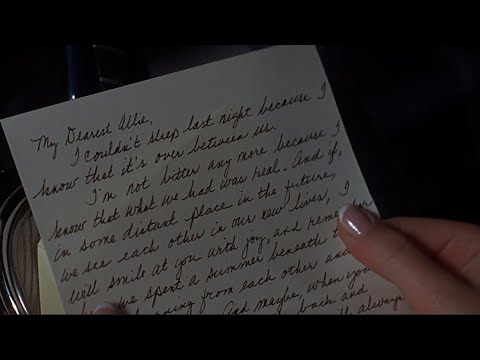 My Dearest Allie,
I couldn't sleep last night because I
know that it's over between us.
I'm not bitter any more because I
know that what we had was real. And if,
in some distant place in the future,
we see each other in our new lives, I
will smile at you with joy, and remember
we spent a summer beneath
from each other and
And maybe, when you
back and
always